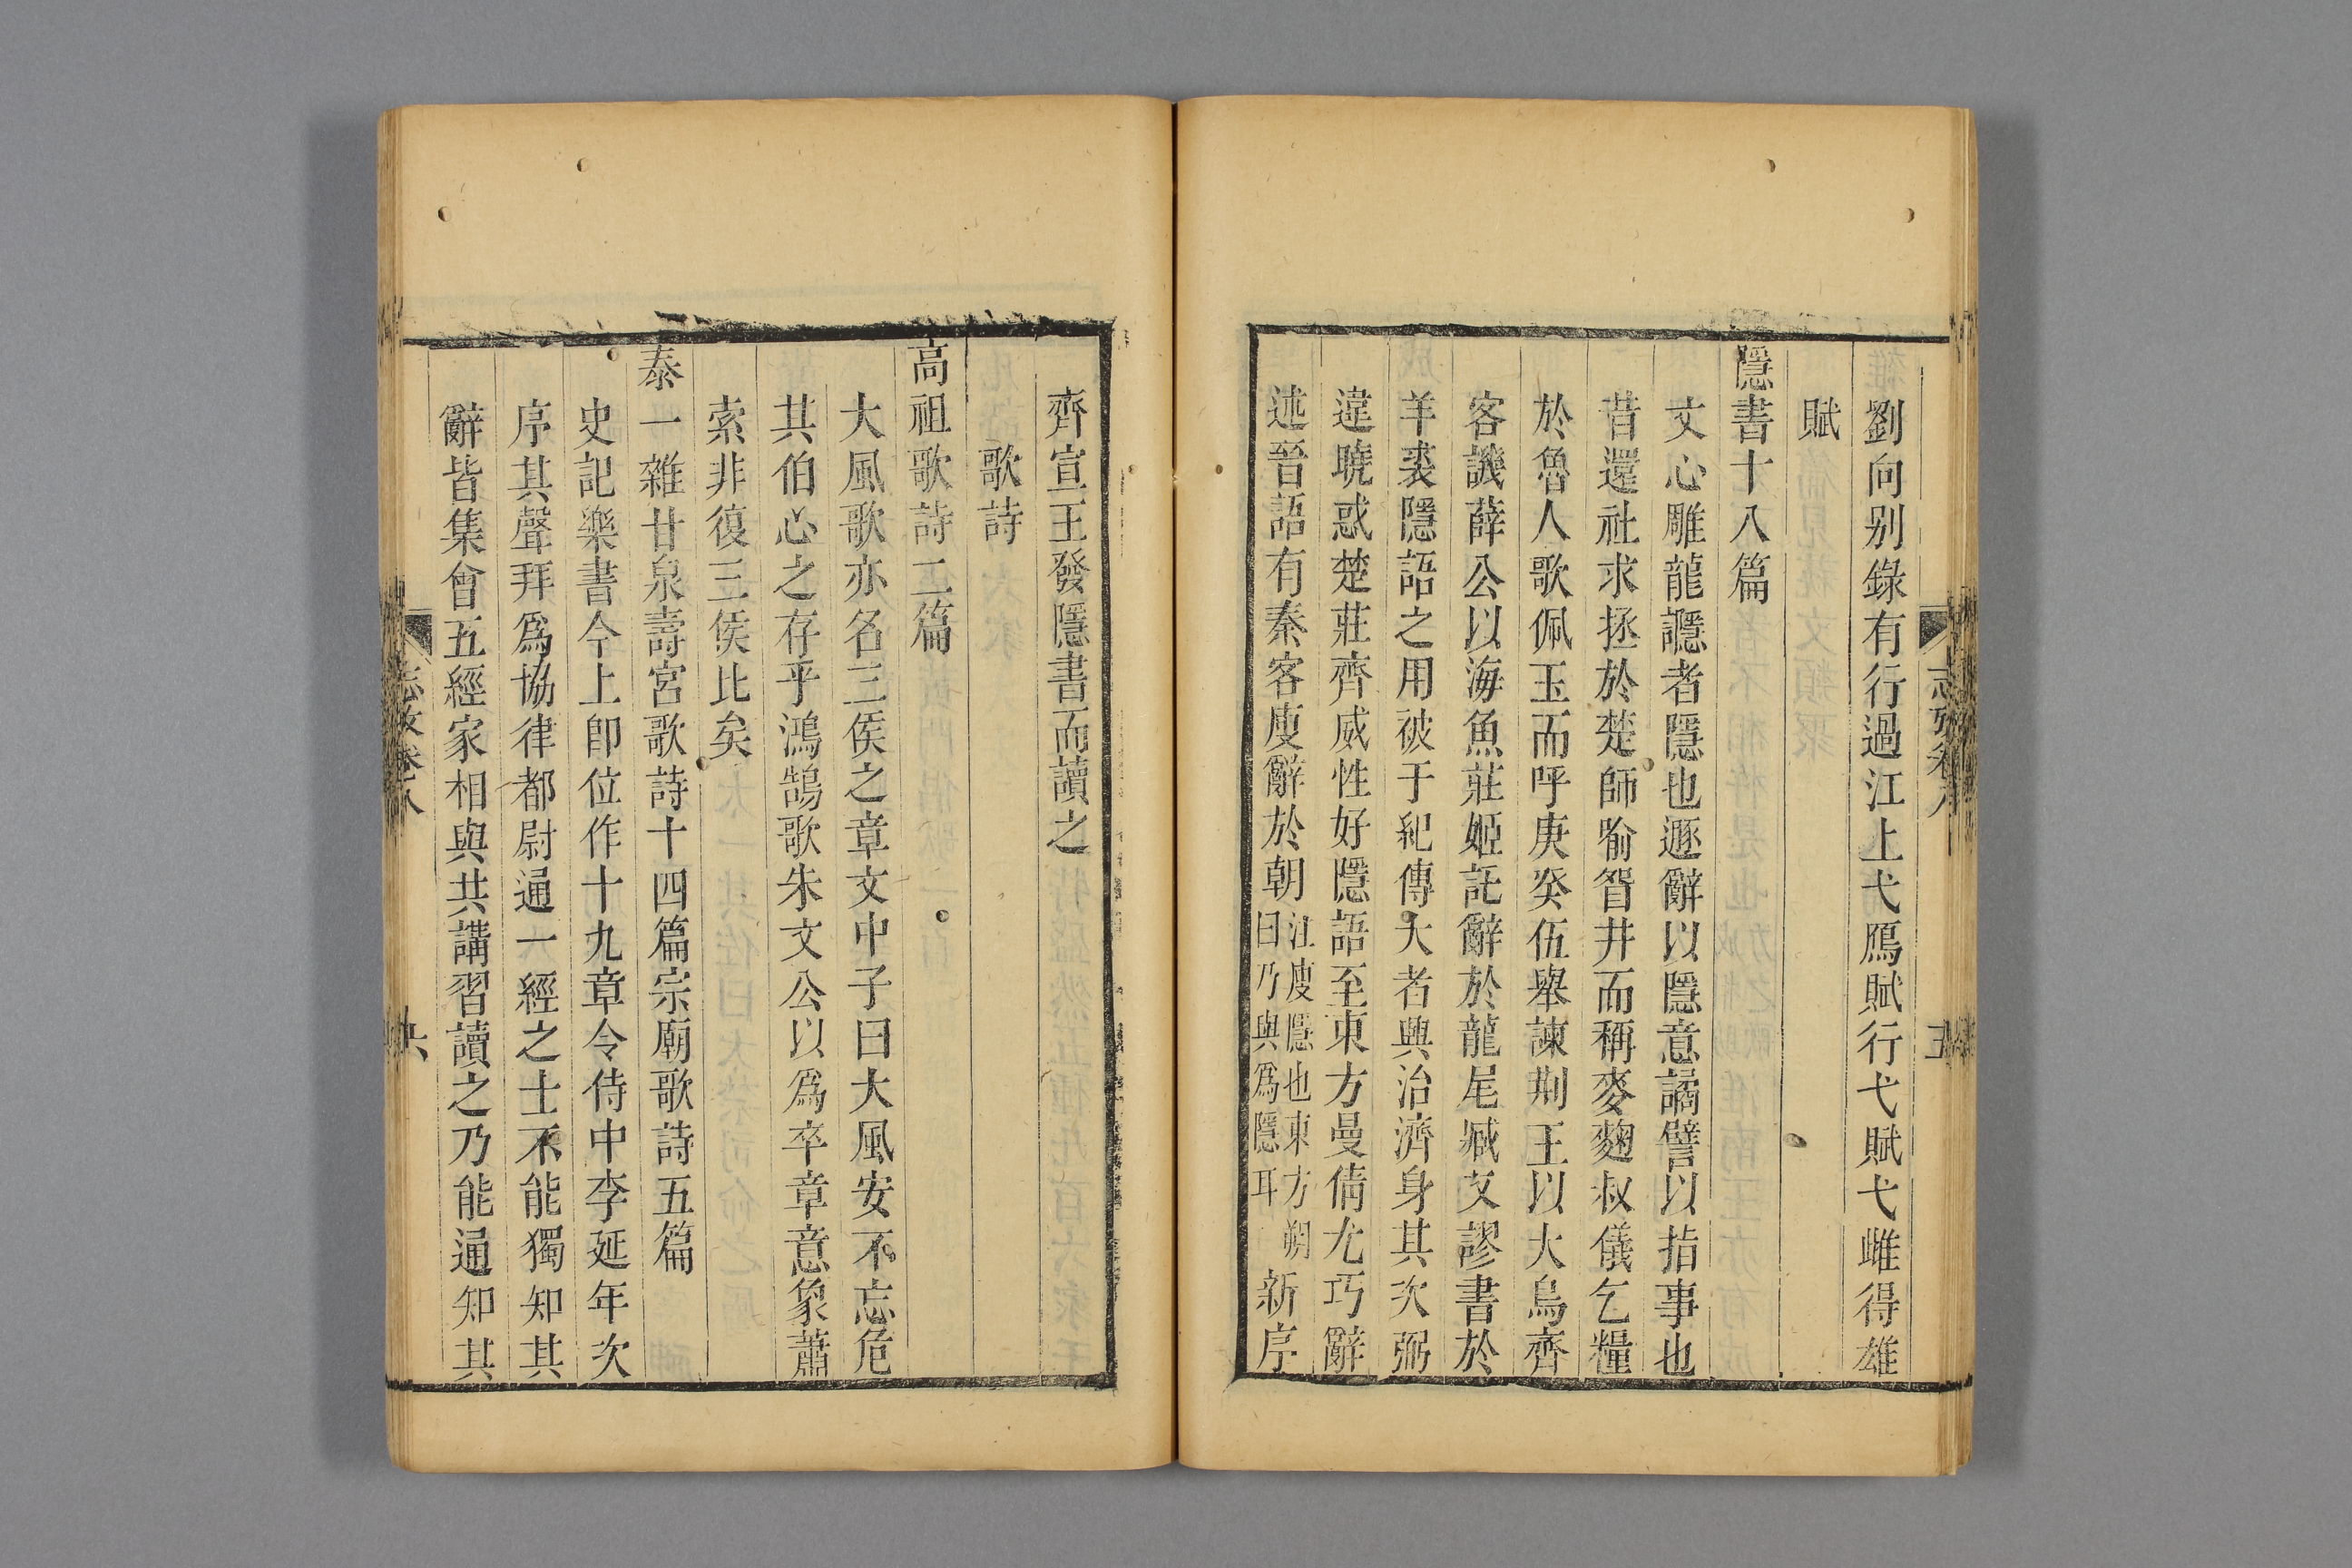 劉向別錄有行過江上弋鴈賦行弋賦弋雌得雄
賦
隱書十八篇
文心雕龍讔者隱也遯辭以隱意譎譬以指事也
昔還社求拯於楚師喻眢井而稱麥麴叔儀乞糧
於魯人歌佩玉而呼庚癸伍舉諫荆王以大鳥齊
客譏薛公以海魚莊姬託辭於龍尾臧文謬書於
羊裘隱語之用被于紀傳大者興治濟身其次弼
違曉惑楚莊齊威性好隱語至東方曼倩尤巧辭
述晉語有秦客廋辭於朝注廋隱也東方朔曰乃與爲隱耳新序
齊宣王發隱書而讀之
歌詩
高祖歌詩二篇
大風歌亦名三侯之章文中子曰大風安不忘危
其伯心之存乎鴻鵠歌朱文公以爲卒章意象蕭
索非復三侯比矣
泰一雜甘泉壽宮歌詩十四篇宗廟歌詩五篇
史記樂書今上卽位作十九章令侍中李延年次
序其聲拜爲協律都尉通一經之士不能獨知其
辭皆集會五經家相與共講習讀之乃能通知其